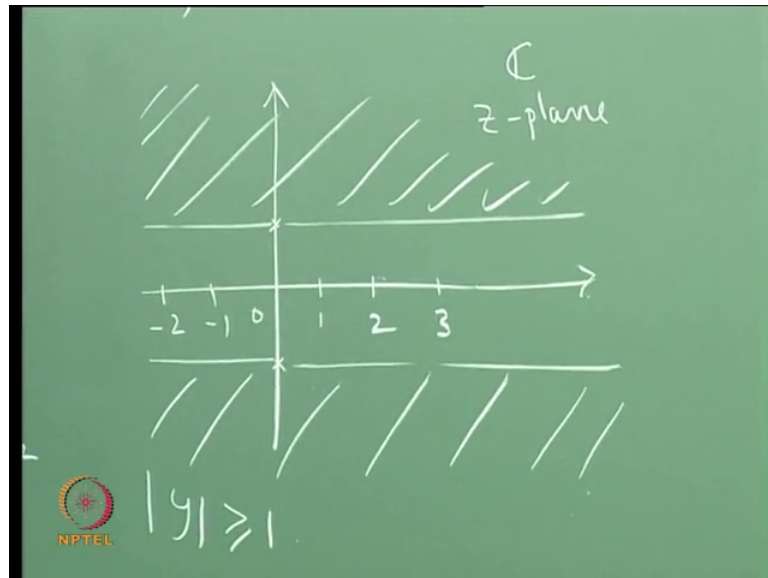 ℂ
z-plane
-2 -1 0 1 2 3
|y| ≥ 1
NPTEL